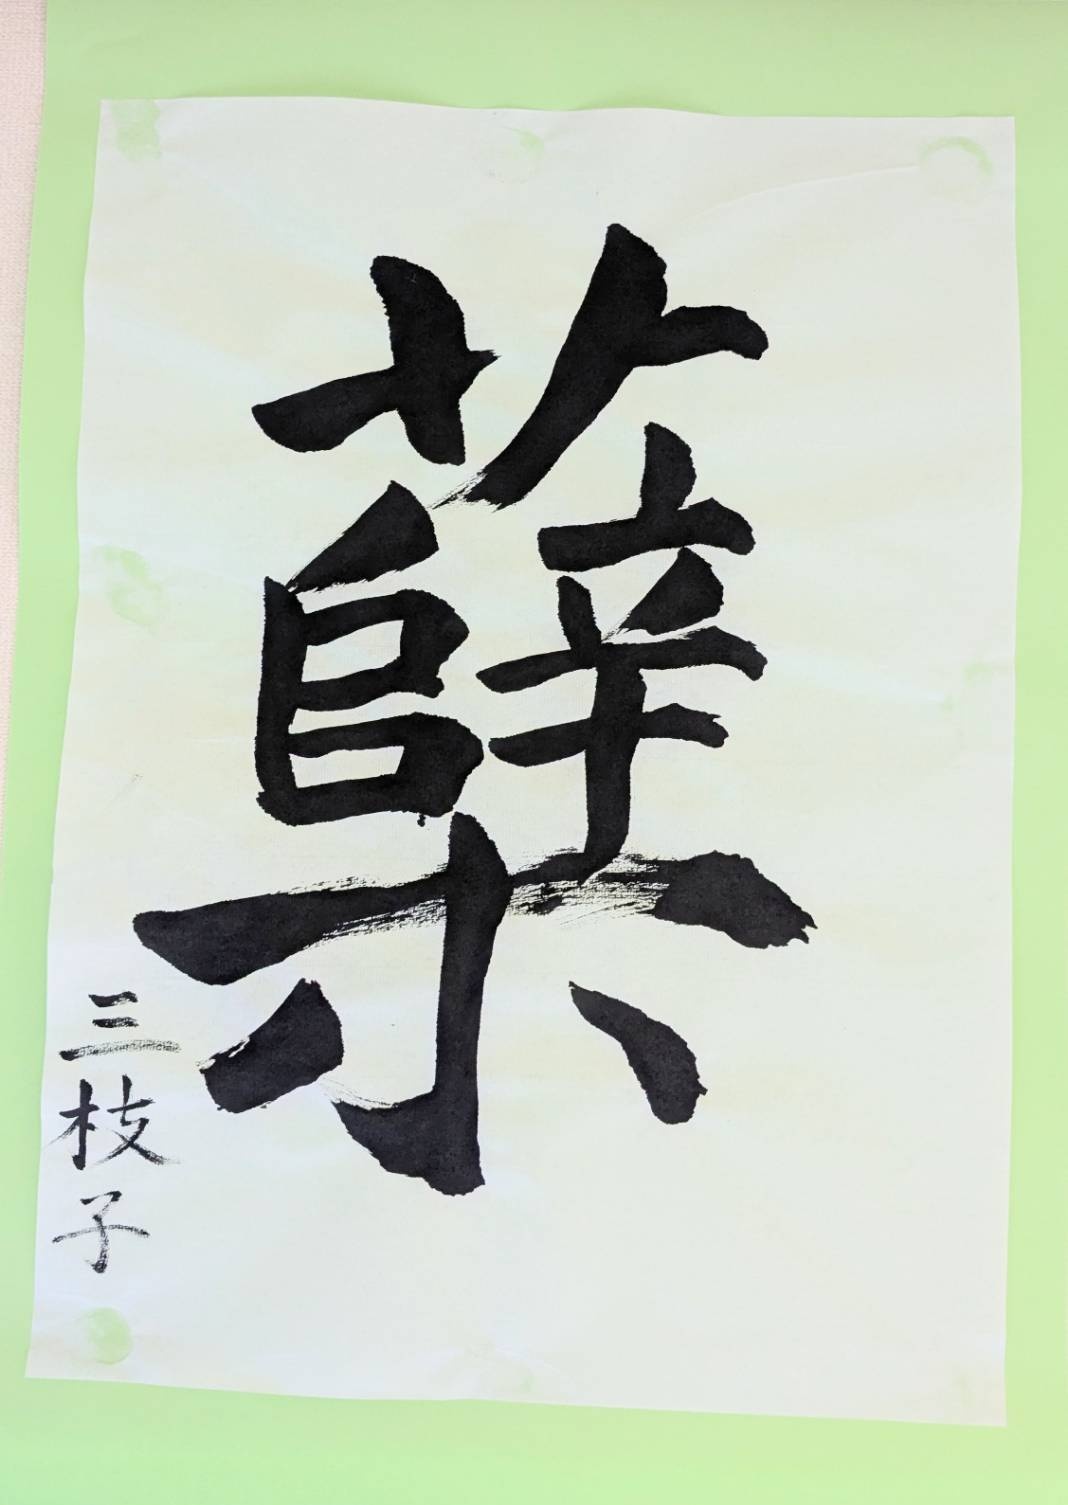 蘖
三枝子